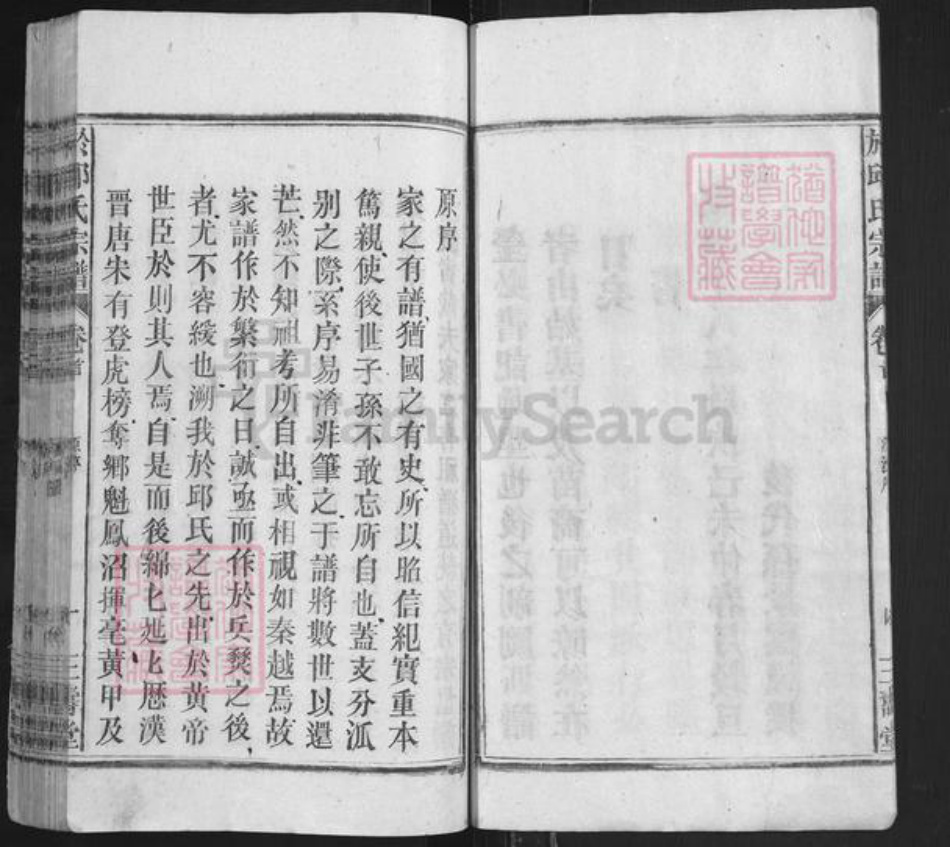 於邱氏宗譜
卷首
三
堂
原序
家之有譜猶國之有史所以昭信紀實重本
篤親使後世子孫不敢忘所自也蓋支分派
别之際系序易淆非筆之于譜將數世以還
茫然不知祖考所自出或相視如秦越焉故
家譜作於繁衍之日誠亟而作於兵燹之後
者尤不容緩也溯我於邱氏之先出於黃帝
世臣於則其人焉自是而後綿匕𨒂匕歷漢
晋唐宋有登虎榜奪鄉魁鳳沼揮毫黃甲及
於邱氏宗譜
卷首
原序
一
三
堂
譜學會
收藏
FamilySearch